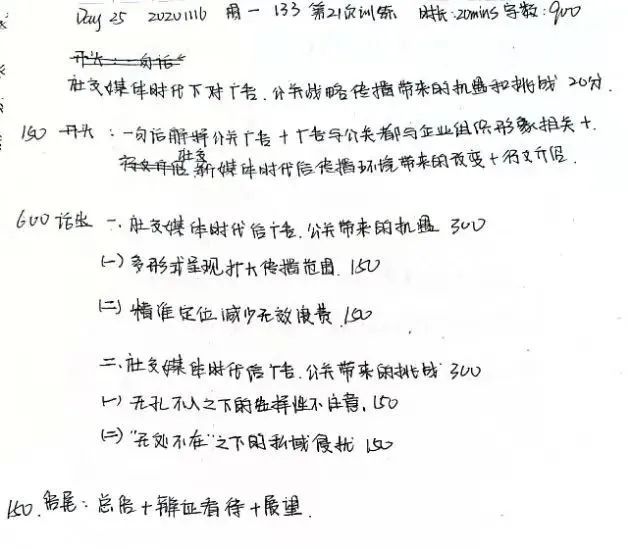 Day 25 20201116 周一 133 第21次训练 时长:20mins 字数:900
开头:一句话
社交媒体时代下对广告、公关战略传播带来的机遇和挑战 20分.
150 开头:一句话解释公关广告+广告与公关都与企业组织形象相关+
行文介绍 社交新媒体时代给传播环境带来的改变+行文介绍.
600 论述 一、社交媒体时代给广告、公关带来的机遇 300
(一)多形式呈现扩大传播范围.150
(二)精准定位减少无效浪费.150
二、社交媒体时代给广告、公关带来的挑战 300
(一)无孔不入之下的选择性不注意.150
(二)"无处不在"之下的私域侵扰 150
150.结尾:总结+辩证看待+展望.